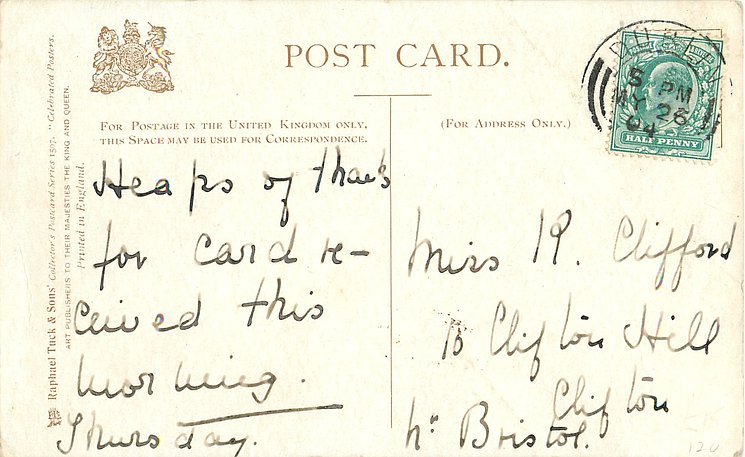 POST CARD.
FOR POSTAGE IN THE UNITED KINGDOM ONLY,
THIS SPACE MAY BE USED FOR CORRESPONDENCE.
(FOR ADDRESS ONLY.)
5 PM
MY 26
04
HALF PENNY
Raphael Tuck & Sons' Collector's Postcard Series 1507. "Celebrated Posters.
ART PUBLISHERS TO THEIR MAJESTIES THE KING AND QUEEN.
Printed in England.
Heaps of thanks
for card re-
ceived this
morning.
Thursday.
Miss R. Clifford
10 Clifton Hill
Clifton
nr Bristol.
120